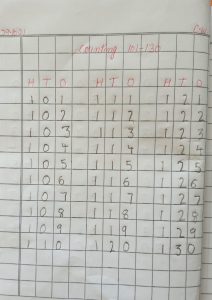 Counting 101-130
H T O H T O H T O
1 0 1 1 1 1 1 2 1
1 0 2 1 1 2 1 2 2
1 0 3 1 1 3 1 2 3
1 0 4 1 1 4 1 2 4
1 0 5 1 1 5 1 2 5
1 0 6 1 1 6 1 2 6
1 0 7 1 1 7 1 2 7
1 0 8 1 1 8 1 2 8
1 0 9 1 1 9 1 2 9
1 1 0 1 2 0 1 3 0